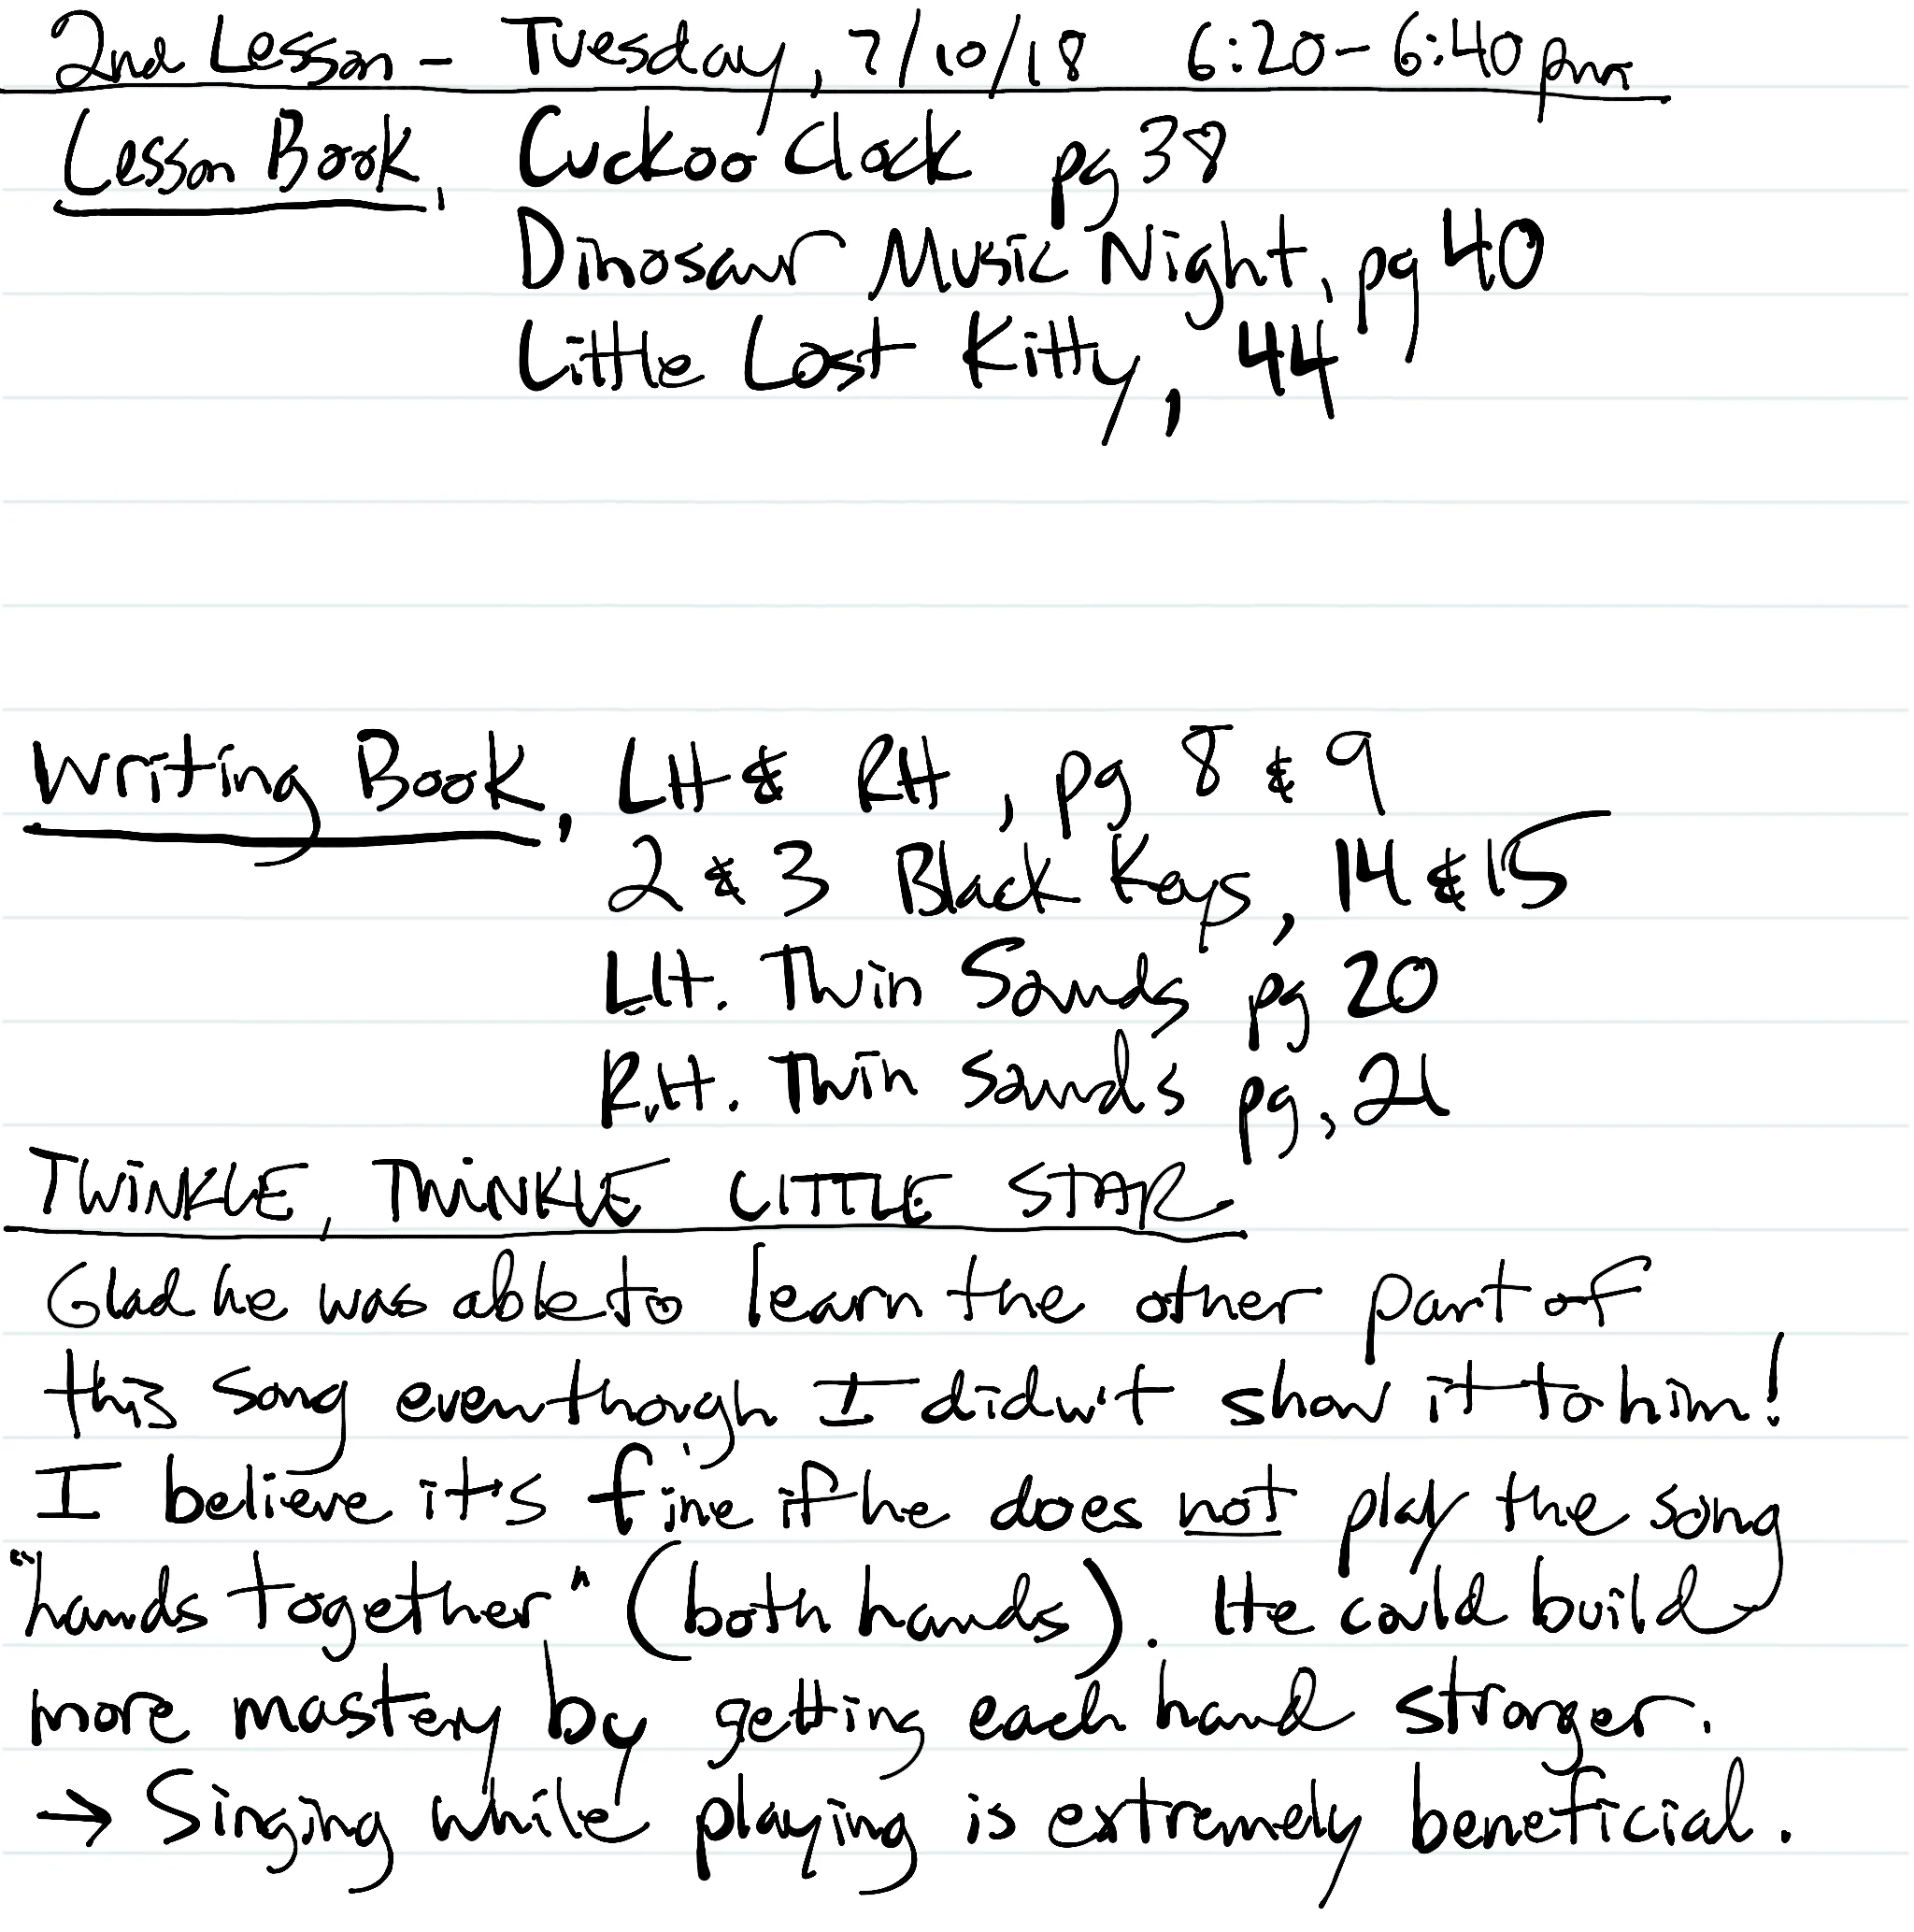 2nd Lesson - Tuesday, 7/10/18 6:20-6:40pm
Lesson Book, Cuckoo Clock pg 38
Dinosaur Music Night, pg 40
Little Lost Kitty, 44
Writing Book, LH & RH, pg 8 & 9
2 & 3 Black Keys, 14 & 15
L.H. Twin Sounds pg 20
R.H. Twin Sounds pg, 21
TWINKLE, TWINKLE LITTLE STAR
Glad he was able to learn the other part of
this song eventhough I didn't show it to him!
I believe it's fine if he does not play the song
"hands together" (both hands). He could build
more mastery by getting each hand stronger.
→ Singing while playing is extremely beneficial.